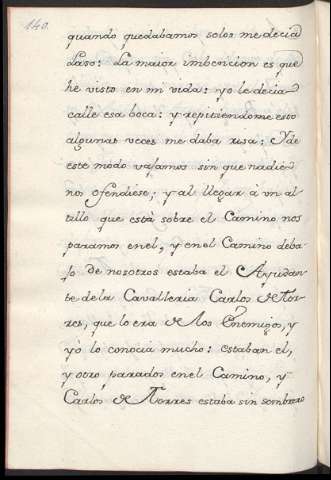 140.
quando quedabamos solos me decia
Laso: La maior imbencion es que
he visto en mi vida: yo le decia
calle esa boca: y repitiendome esto
algunas veces me daba risa: Yde
este modo vajamos sin que nadie
nos ofendiese; y al llegar à vn al
tillo que està sobre el Camino nos
paramos en el, y en el Camino deba-
jo de nosotros estaba el Ayudan-
te de la Cavalleria Carlos de Tor-
res, que lo era de los Enemigos, y
yò lo conocia mucho: estaban el,
y otro parados en el Camino, y
Carlos de Torres estaba sin sombrero